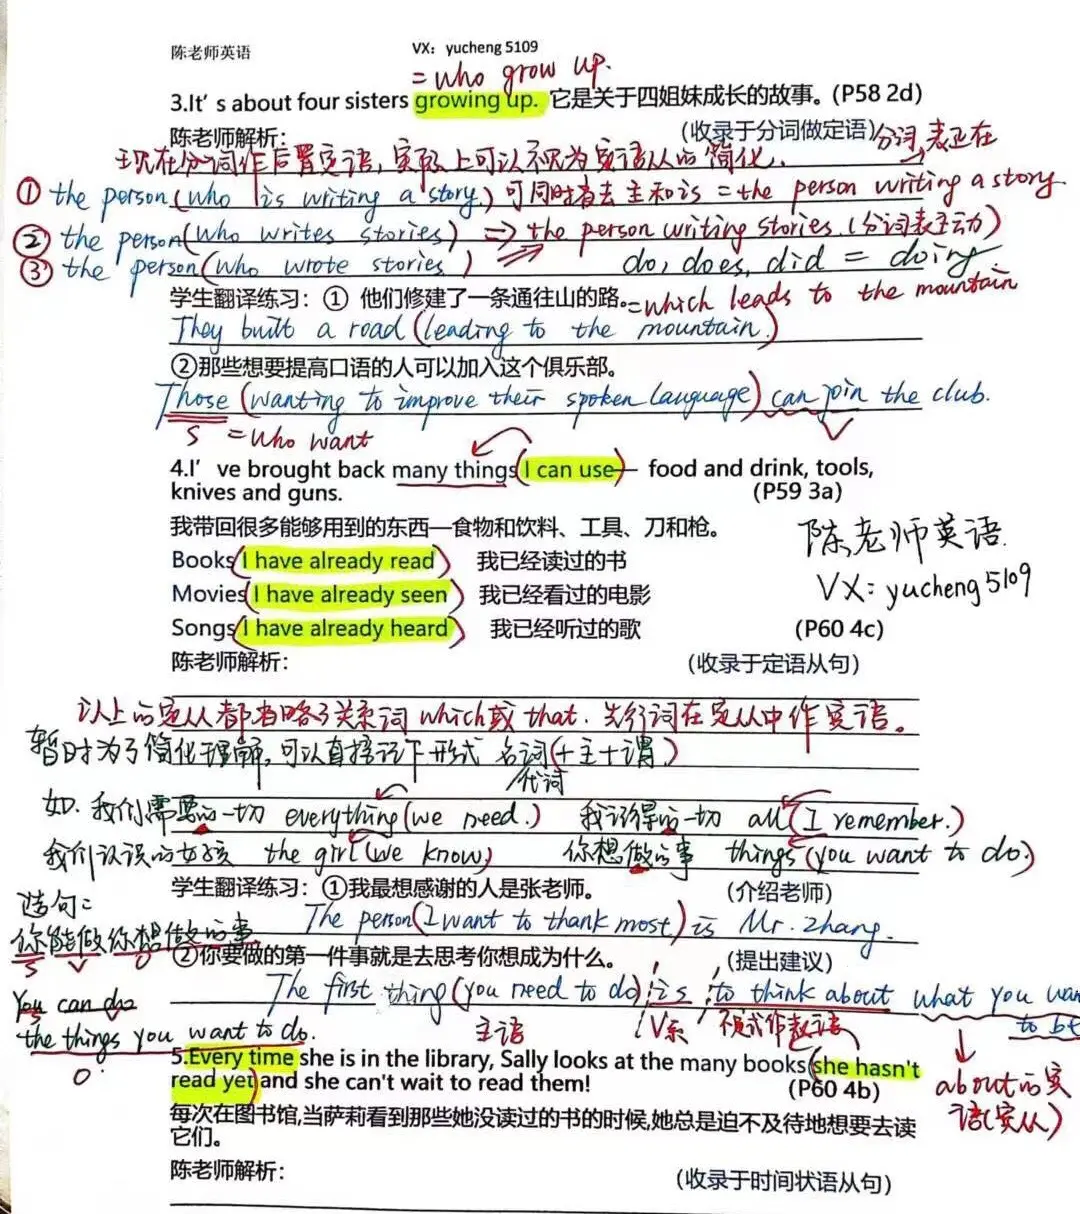 陈老师英语 VX：yucheng 5109
= who grow up.
3.It's about four sisters growing up. 它是关于四姐妹成长的故事。(P58 2d)
陈老师解析： (收录于分词做定语) 分词表正在
现在分词作后置定语，实际上可以视为定语从的简化.
① the person (who is writing a story.) 可同时省去主和is = the person writing a story.
② the person (who writes stories) ⇒ the person writing stories. (分词表主动)
③ the person (who wrote stories) do, does, did = doing
学生翻译练习：① 他们修建了一条通往山的路。=which leads to the mountain
They built a road (leading to the mountain.)
②那些想要提高口语的人可以加入这个俱乐部。
Those (wanting to improve their spoken language) can join the club.
S = who want V
4.I've brought back many things (I can use) — food and drink, tools,
knives and guns. (P59 3a)
我带回很多能够用到的东西—食物和饮料、工具、刀和枪。
陈老师英语.
Books (I have already read) 我已经读过的书
VX: yucheng 5109
Movies (I have already seen) 我已经看过的电影
Songs (I have already heard) 我已经听过的歌 (P60 4c)
陈老师解析： (收录于定语从句)
以上的定从都省略了关系词 which或 that. 先行词在定从中作宾语。
暂时为了简化理解，可以直接记下形式 名词 (+主+谓.)
代词
如. 我们需要的一切 everything (we need.) 我记得的一切 all (I remember.)
我们认识的女孩 the girl (we know) 你想做的事 things (you want to do.)
学生翻译练习：①我最想感谢的人是张老师。 (介绍老师)
造句:
The person (I want to thank most) is Mr. Zhang.
你能做你想做的事
S V O
②你要做的第一件事就是去思考你想成为什么。 (提出建议)
The first thing (you need to do) is to think about what you wan
to be
You can do
the things you want to do.
O
主语 V系 不定式作表语
about的宾
语(宾从)
5.Every time she is in the library, Sally looks at the many books (she hasn't
read yet) and she can't wait to read them! (P60 4b)
每次在图书馆,当萨莉看到那些她没读过的书的时候,她总是迫不及待地想要去读
它们。
陈老师解析： (收录于时间状语从句)